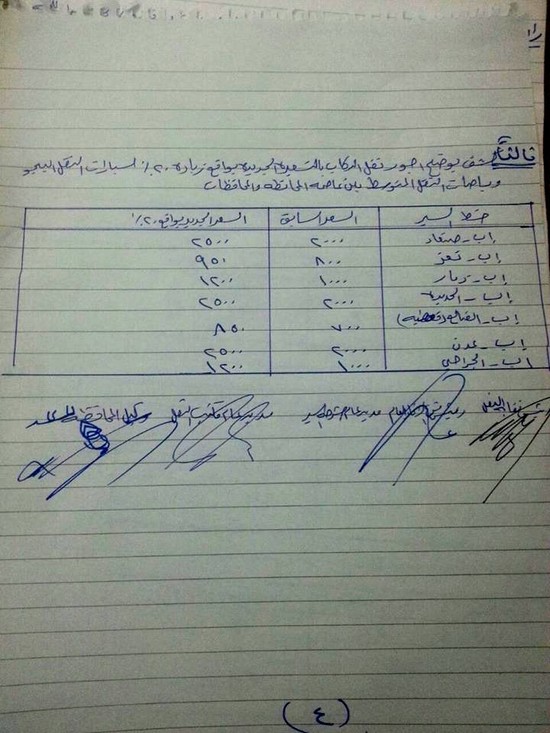 ثالثاً كشف يوضح اجور نقل الركاب بالتسعيرة الجديدة بواقع زيادة ٢٠٪ لسيارات النقل البيجو
وباصات النقل المتوسط بين عاصمة المحافظة والمحافظات
خط السير السعر السابق السعر الجديد بواقع ٢٠٪
إب - صنعاء ٢٠٠٠ ٢٥٠٠
إب - تعز ٨٠٠ ٩٥٠
إب - ذمار ١٠٠٠ ١٢٠٠
إب - الحديدة ٢٠٠٠ ٢٥٠٠
إب - الضالع (قعطبة) ٧٠٠ ٨٥٠
إب - عدن ٢٠٠٠ ٢٥٠٠
إب - الجراحي ١٠٠٠ ١٢٠٠
مدير عام مدير عام مكتب النقل وكيل المحافظة
(٤)